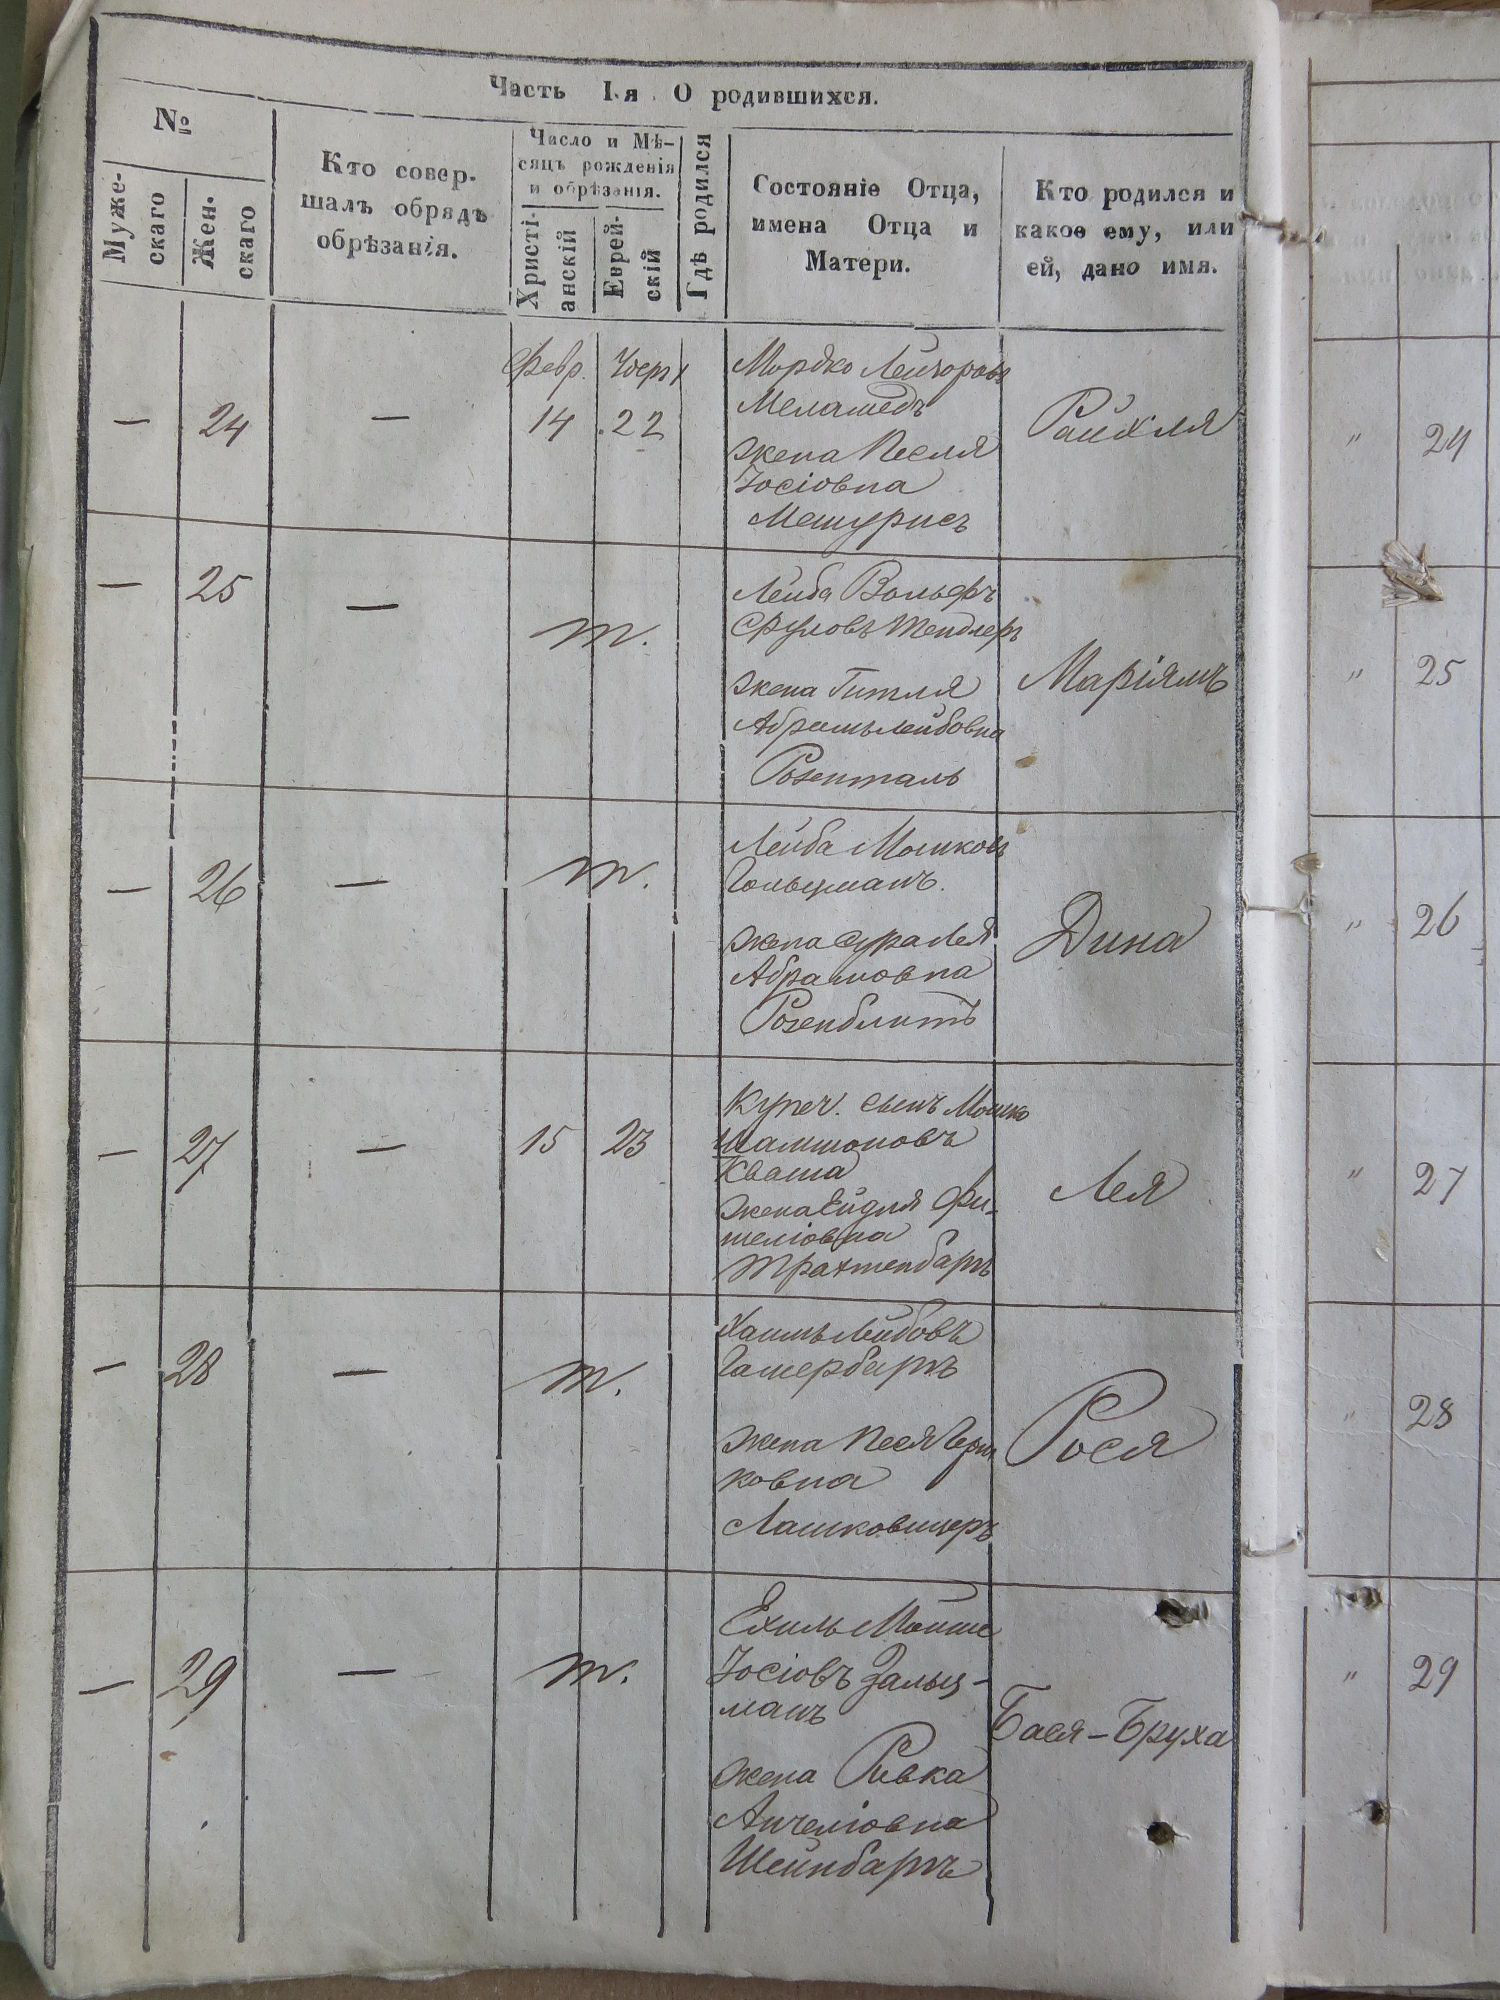 Часть I-я О родившихся.
№
Муже-
скаго
Жен-
скаго
Кто совер-
шалъ обрядъ
обрѣзанія.
Число и Мѣ-
сяцъ рожденія
и обрѣзанія.
Христі-
анскій
Еврей-
скій
Гдѣ родился
Состояніе Отца,
имена Отца и
Матери.
Кто родился и
какое ему, или
ей, дано имя.
— 24 —
Февр.
14 22
Мордко Лейзоровъ
Меламедъ
жена Песля
Іосіовна
Мешурисъ
Райхля
" 24
— 25 —
т.
Лейба Вольфъ
Сруловъ Тендлеръ
жена Гитля
Абрамълейбовна
Розенталь
Маріямъ
" 25
— 26 —
т.
Лейба Мошковъ
Гольцманъ.
жена Сура Лея
Абрамовна
Розенблитъ
Дина
" 26
— 27 —
15 23
Купеч. сынъ Мошко
Шамшоновъ
Кваша
жена Ейдля Фи-
шеліовна
Трахтенбаргъ
Лея
" 27
— 28 —
т.
Хаимъ Лейбовъ
Гамербергъ
жена Песя Берш
ковна
Лашковицеръ
Рося
" 28
— 29 —
т.
Ехиль Мойше
Іосіовъ Зальц-
манъ
жена Ривка
Анчеліовна
Шейнбаргъ
Бася-Бруха
" 29